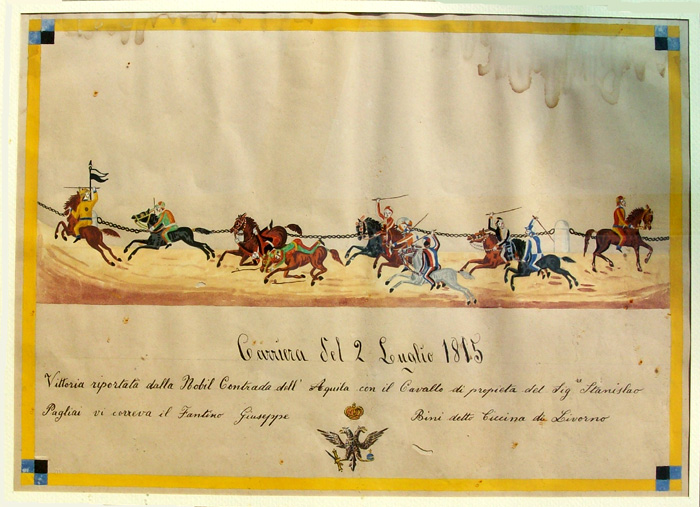 Carriera del 2 Luglio 1815
Vittoria riportata dalla Nobil Contrada dell' Aquila con il Cavallo di propieta del Sig.ͬ Stanislao
Pagliai vi correva il Fantino Giuseppe Bini detto Ciccina da Livorno